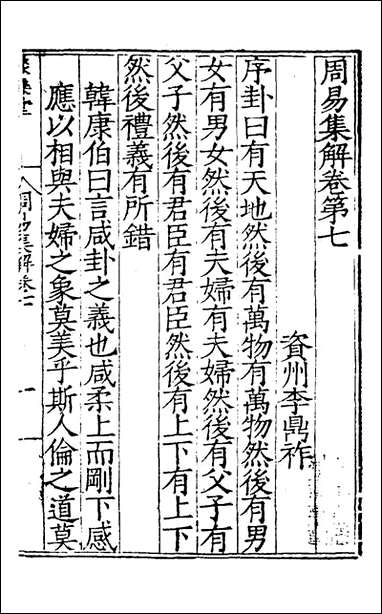 周易集解卷第七
資州李鼎祚
序卦曰有天地然後有萬物有萬物然後有男
女有男女然後有夫婦有夫婦然後有父子有
父子然後有君臣有君臣然後有上下有上下
然後禮義有所錯
韓康伯曰言咸卦之義也咸柔上而剛下感
應以相與夫婦之象莫美乎斯人倫之道莫
周易集解卷七